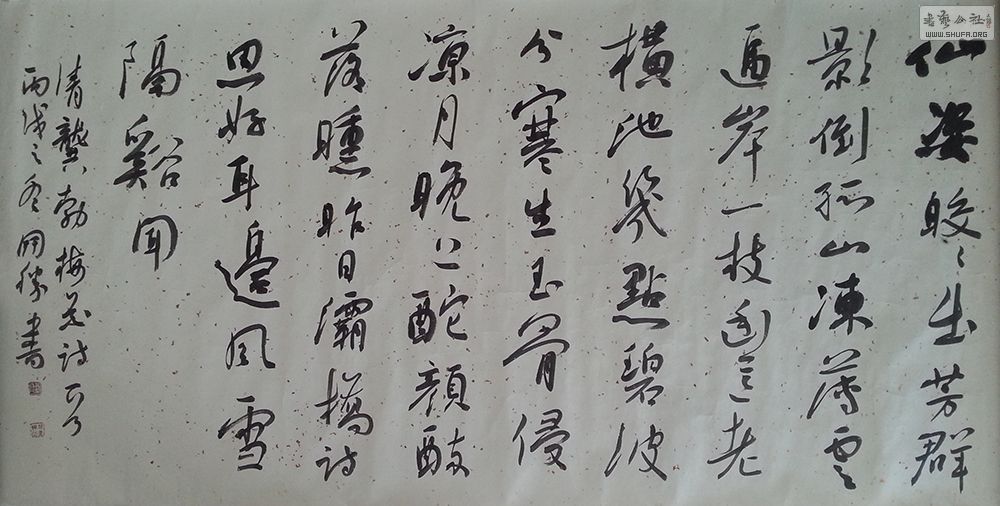 書藝公社
WWW.SHUFA.ORG
仙姿皎々出芳群
影倒孤山凍薄雲
逼岸一枝幽意老
橫池幾點碧波
分寒生玉骨侵
凉月晚上酡顔
落曛昨日灞橋詩
思好耳邊風雪
隔谿聞
清龔勃梅花詩一首
丙戌之冬國勝書